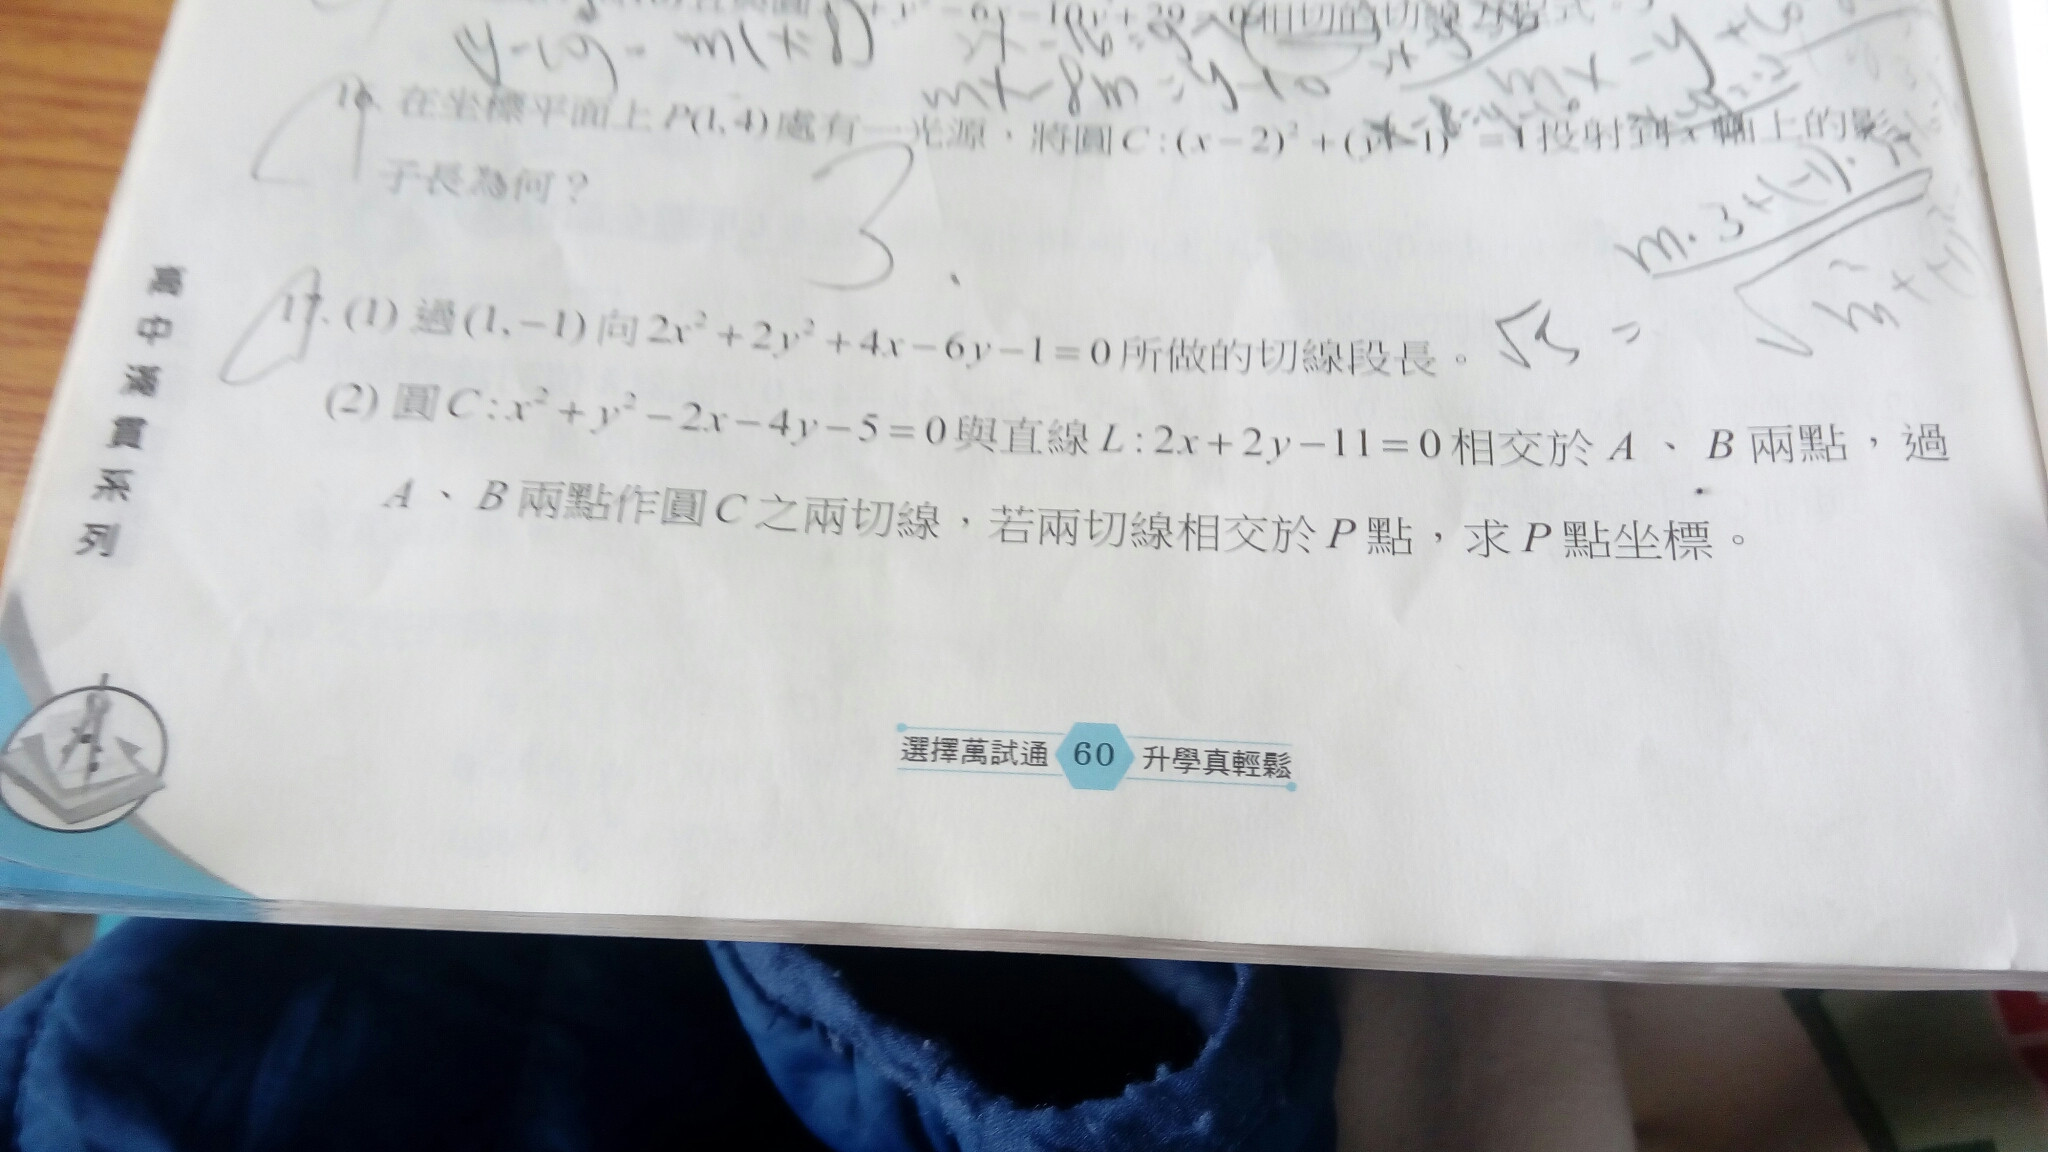 相切的切線方程式。
y-6 = m(x-8)
mx-8m = y
mx-y
16. 在坐標平面上P(1, 4)處有一光源，將圓C:(x-2)²+(y-1)²=1投射到x軸上的影
子長為何？
3
m·3+(-1)·
17. (1) 過(1, -1)向2x²+2y²+4x-6y-1=0所做的切線段長。
(2) 圓C:x²+y²-2x-4y-5=0與直線L:2x+2y-11=0相交於A、B兩點，過
A、B兩點作圓C之兩切線，若兩切線相交於P點，求P點坐標。
高中滿貫系列
選擇萬試通 60 升學真輕鬆